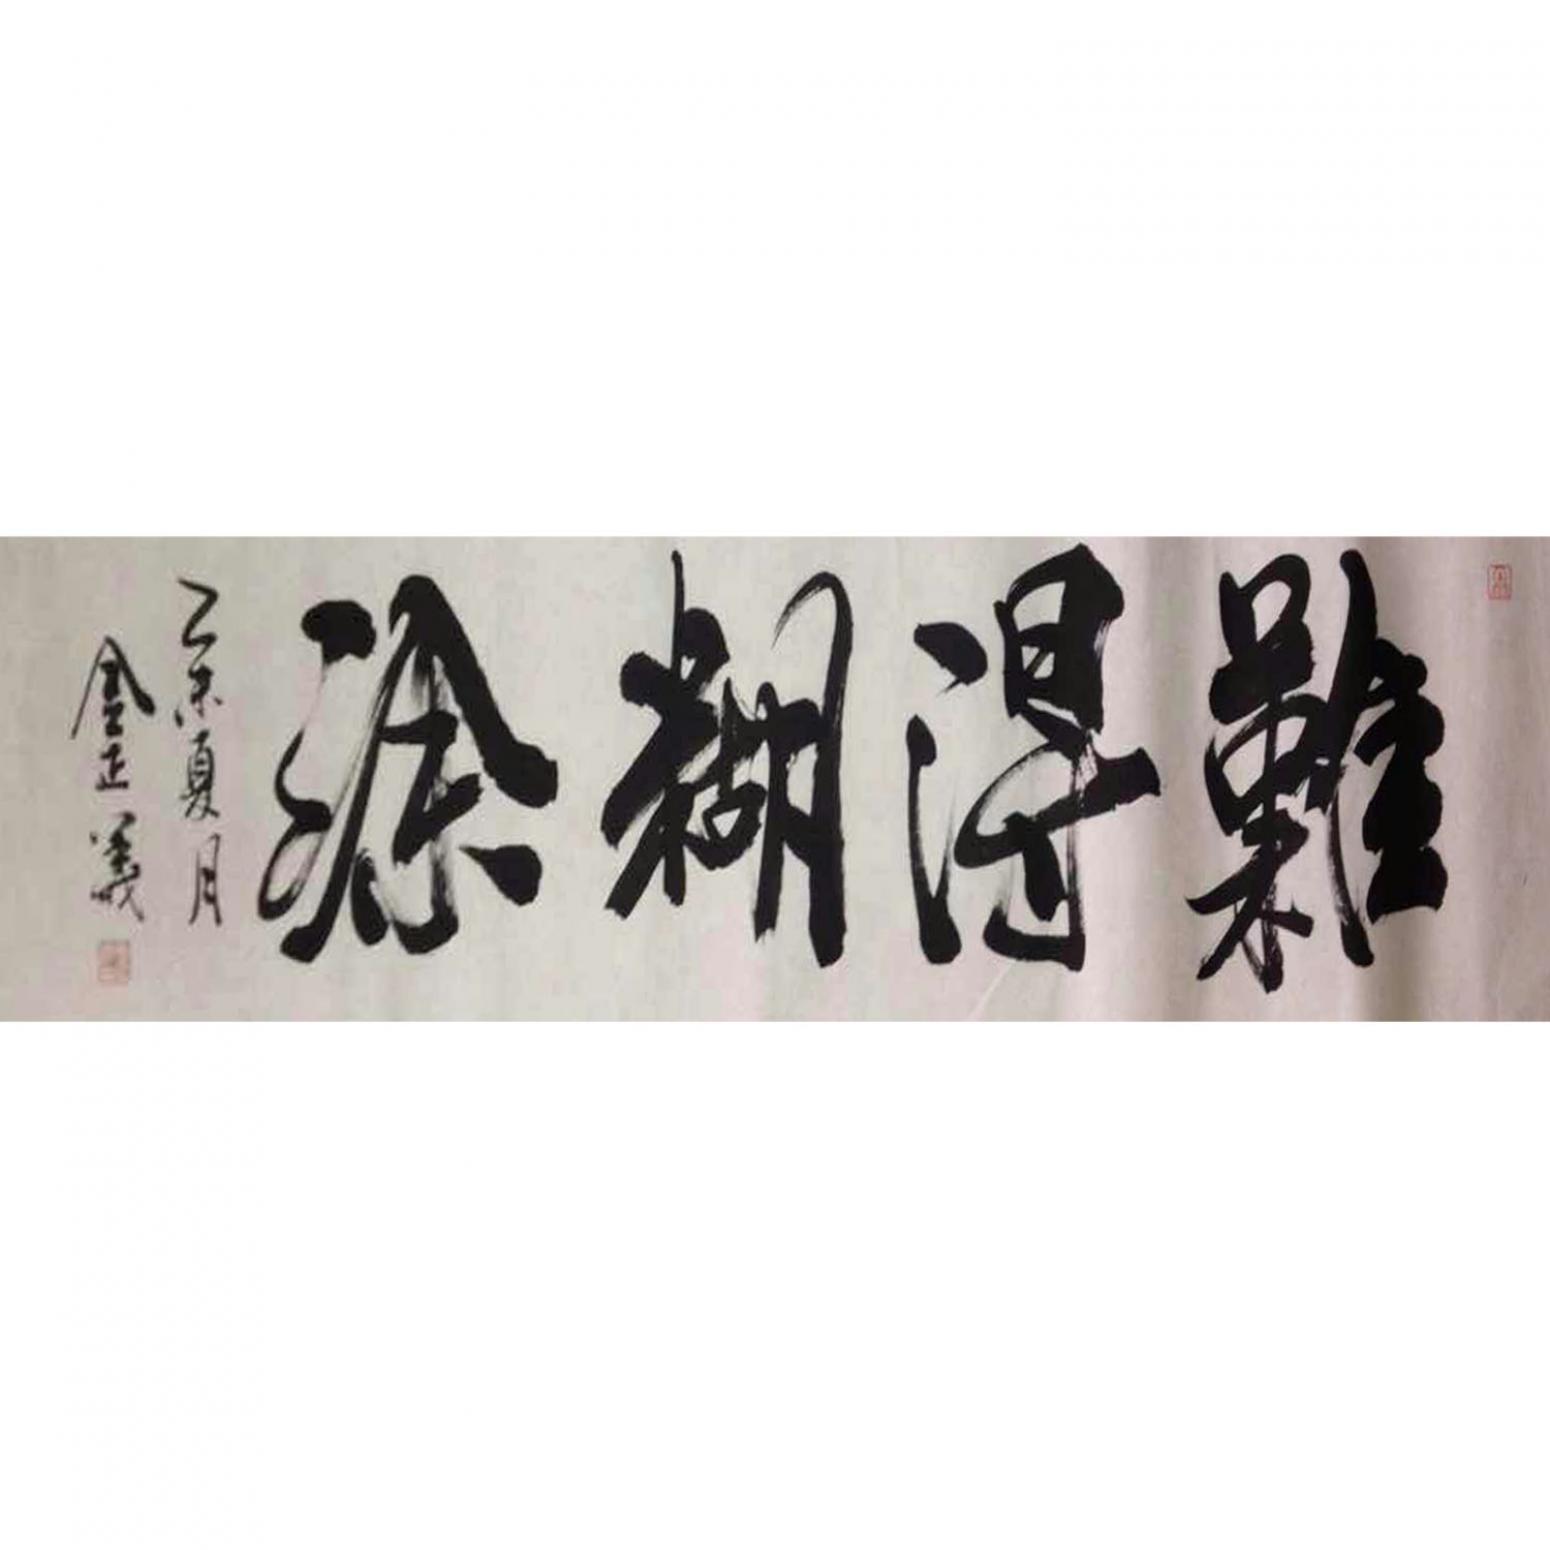 難得糊塗
乙未夏月
金正義